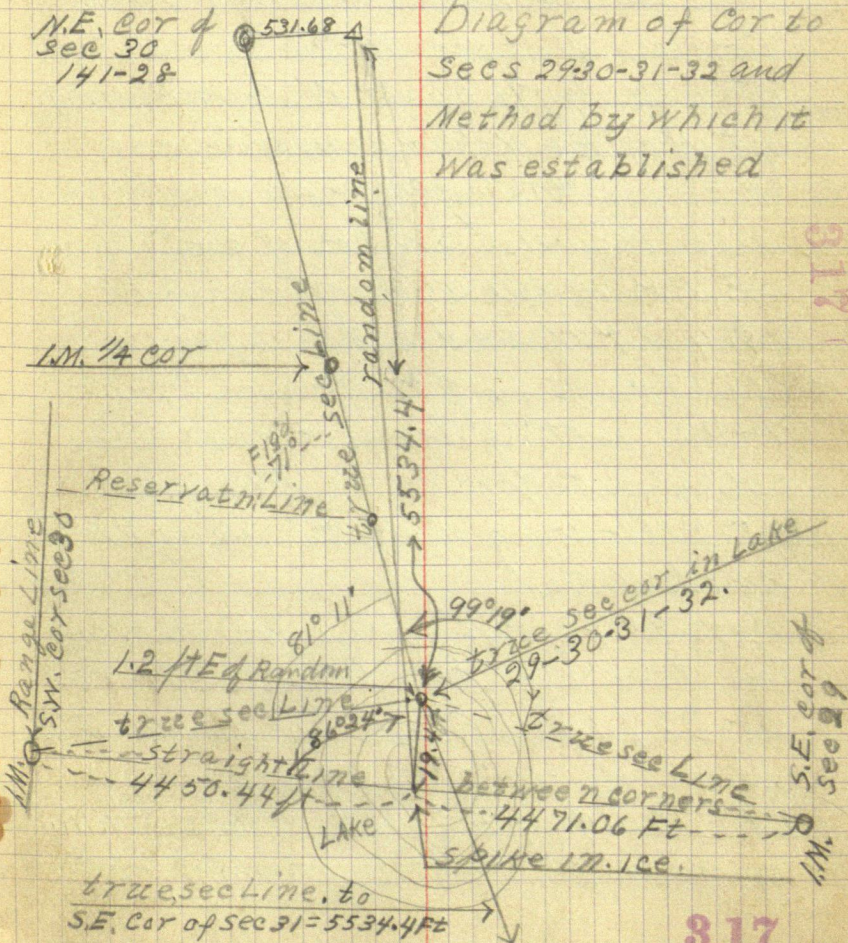 N.E. cor of
sec 30
141-28
531.68
Diagram of Cor to
Secs 29-30-31-32 and
Method by which it
was established
317
random line
true sec line
I.M. 1/4 cor
71°
Reservatn. Line
5534.4
Range Line
S.W. cor sec 30
I.M.
81° 11'
99° 19'
true sec cor in Lake
29-30-31-32.
1.2 ft E of Random
true sec Line
86° 24'
19.4
true sec Line
S.E. cor of
sec 29
I.M.
straight Line
between corners
4450.44 ft
4471.06 Ft
LAKE
spike in ice.
true sec Line. to
S.E. Cor of sec 31 = 5534.4 Ft
317